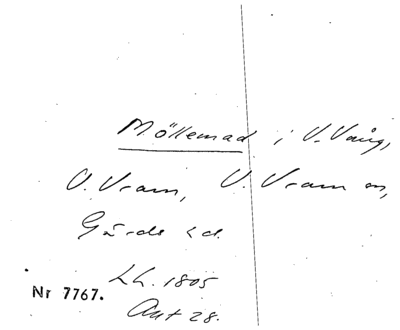 Möllemad i V. Vång,
V. Vram, V. Vram sn,
Gärds hd.
Lh. 1805
Akt 28.
Nr 7767.